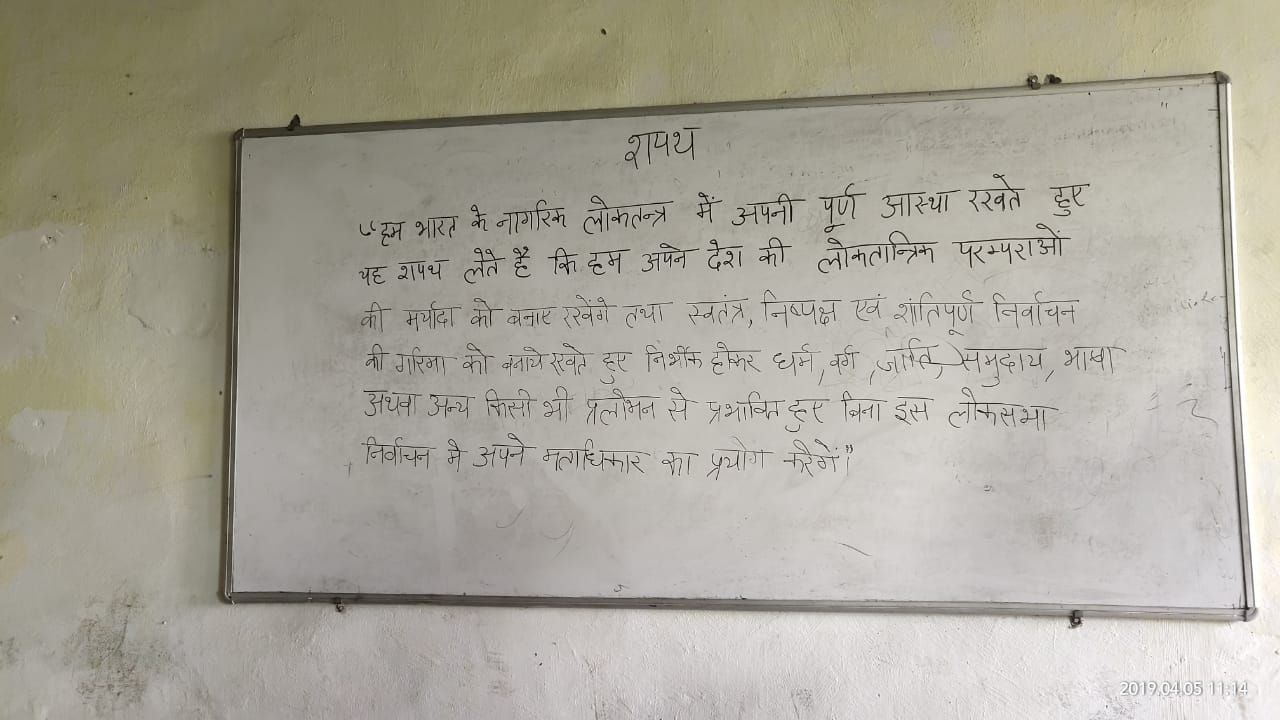 शपथ
“हम भारत के नागरिक लोकतन्त्र में अपनी पूर्ण आस्था रखते हुए
यह शपथ लेते है कि हम अपने देश की लोकतान्त्रिक परम्पराओं
की मर्यादा को बनाए रखेंगे तथा स्वतंत्र, निष्पक्ष एवं शांतिपूर्ण निर्वाचन
की गरिमा को बनाये रखते हुए निर्भीक होकर धर्म, वर्ग, जाति, समुदाय, भाषा
अथवा अन्य किसी भी प्रलोभन से प्रभावित हुए बिना इस लोकसभा
निर्वाचन मे अपने मताधिकार का प्रयोग करेगें।”
2019.04.05 11:14